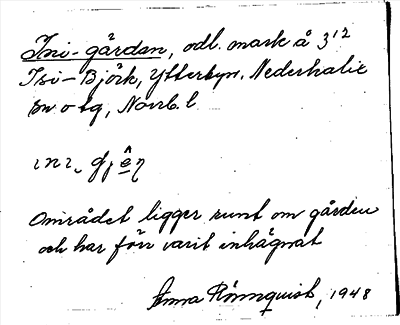 Ini-gården, odl. mark å 3¹²
Isi-Björk, Ytterbyn, Nederkalix
sn o tg, Norrb. l
Området ligger runt om gården
och har förr varit inhägnat
Anna Rönnquist, 1948